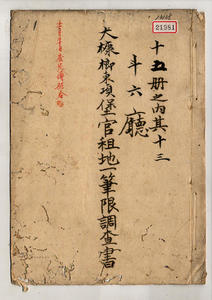 十五册之内其十三
斗六廳
大槺榔東頂堡官租地一筆限調查書
21981